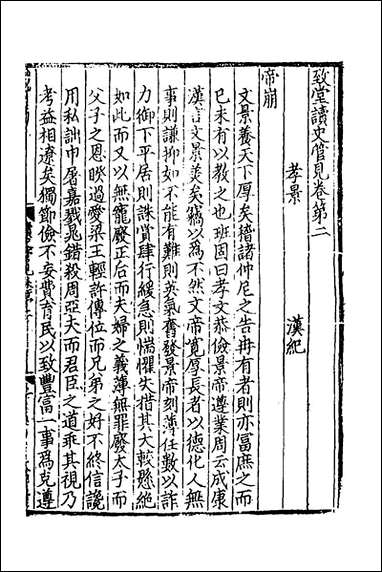 致堂讀史管見卷第二
孝景　漢紀
帝崩
文景養天下厚矣稽諸仲尼之告冉有者則亦富庶之而
已未有以教之也班固曰孝文恭儉景帝遵業周云成康
漢言文景羙矣竊以為不然文帝寬厚長者以德化人無
事則謙抑如不能有難則英氣奮發景帝刻薄任數以詐
力御下平居則誅賞肆行緩急則惴懼失措其大較懸絶
如此而又以無寵廢正后而夫婦之義薄無罪廢太子而
父子之恩睽過愛梁王輕許傳位而兄弟之好不終信讒
用私詘申屠嘉戮晁錯殺周亞夫而君臣之道乖其視乃
考益相遼矣獨節儉不妄費育民以致豐富一事爲克遵